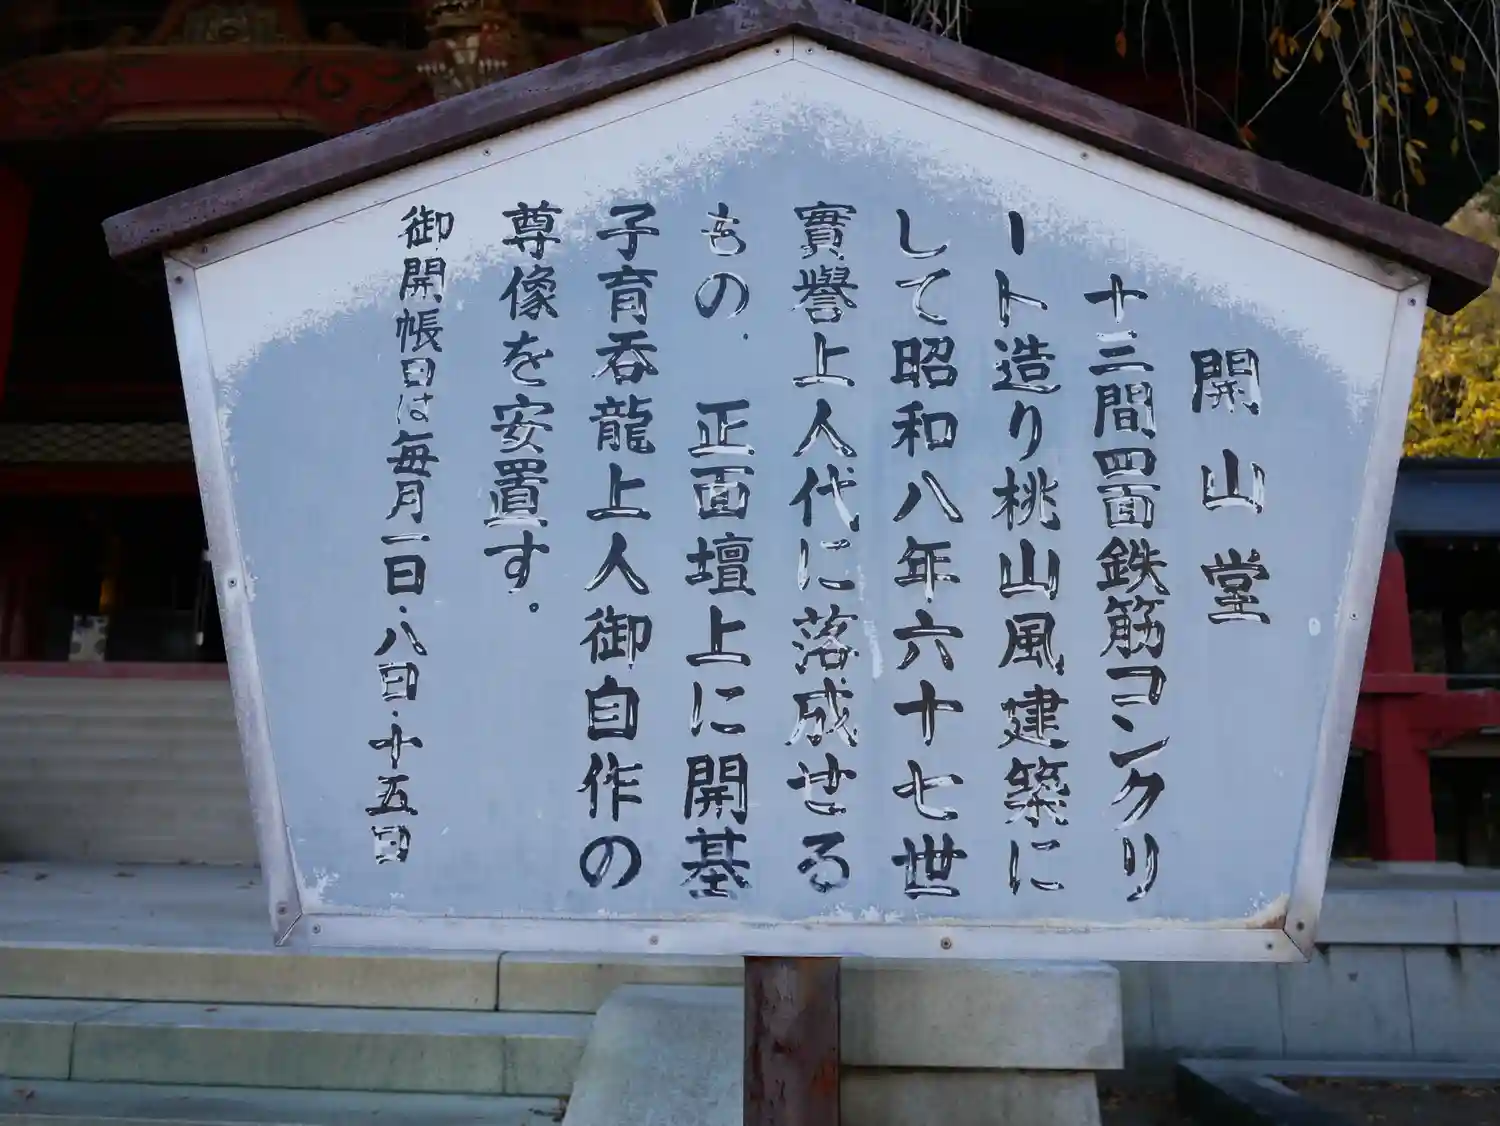 開山堂
十三間四面鉄筋コンクリ
ート造り桃山風建築に
して昭和八年六十七世
實譽上人代に落成せる
もの．正面壇上に開基
子育呑龍上人御自作の
尊像を安置す．
御開帳日は毎月一日・八日・十五日